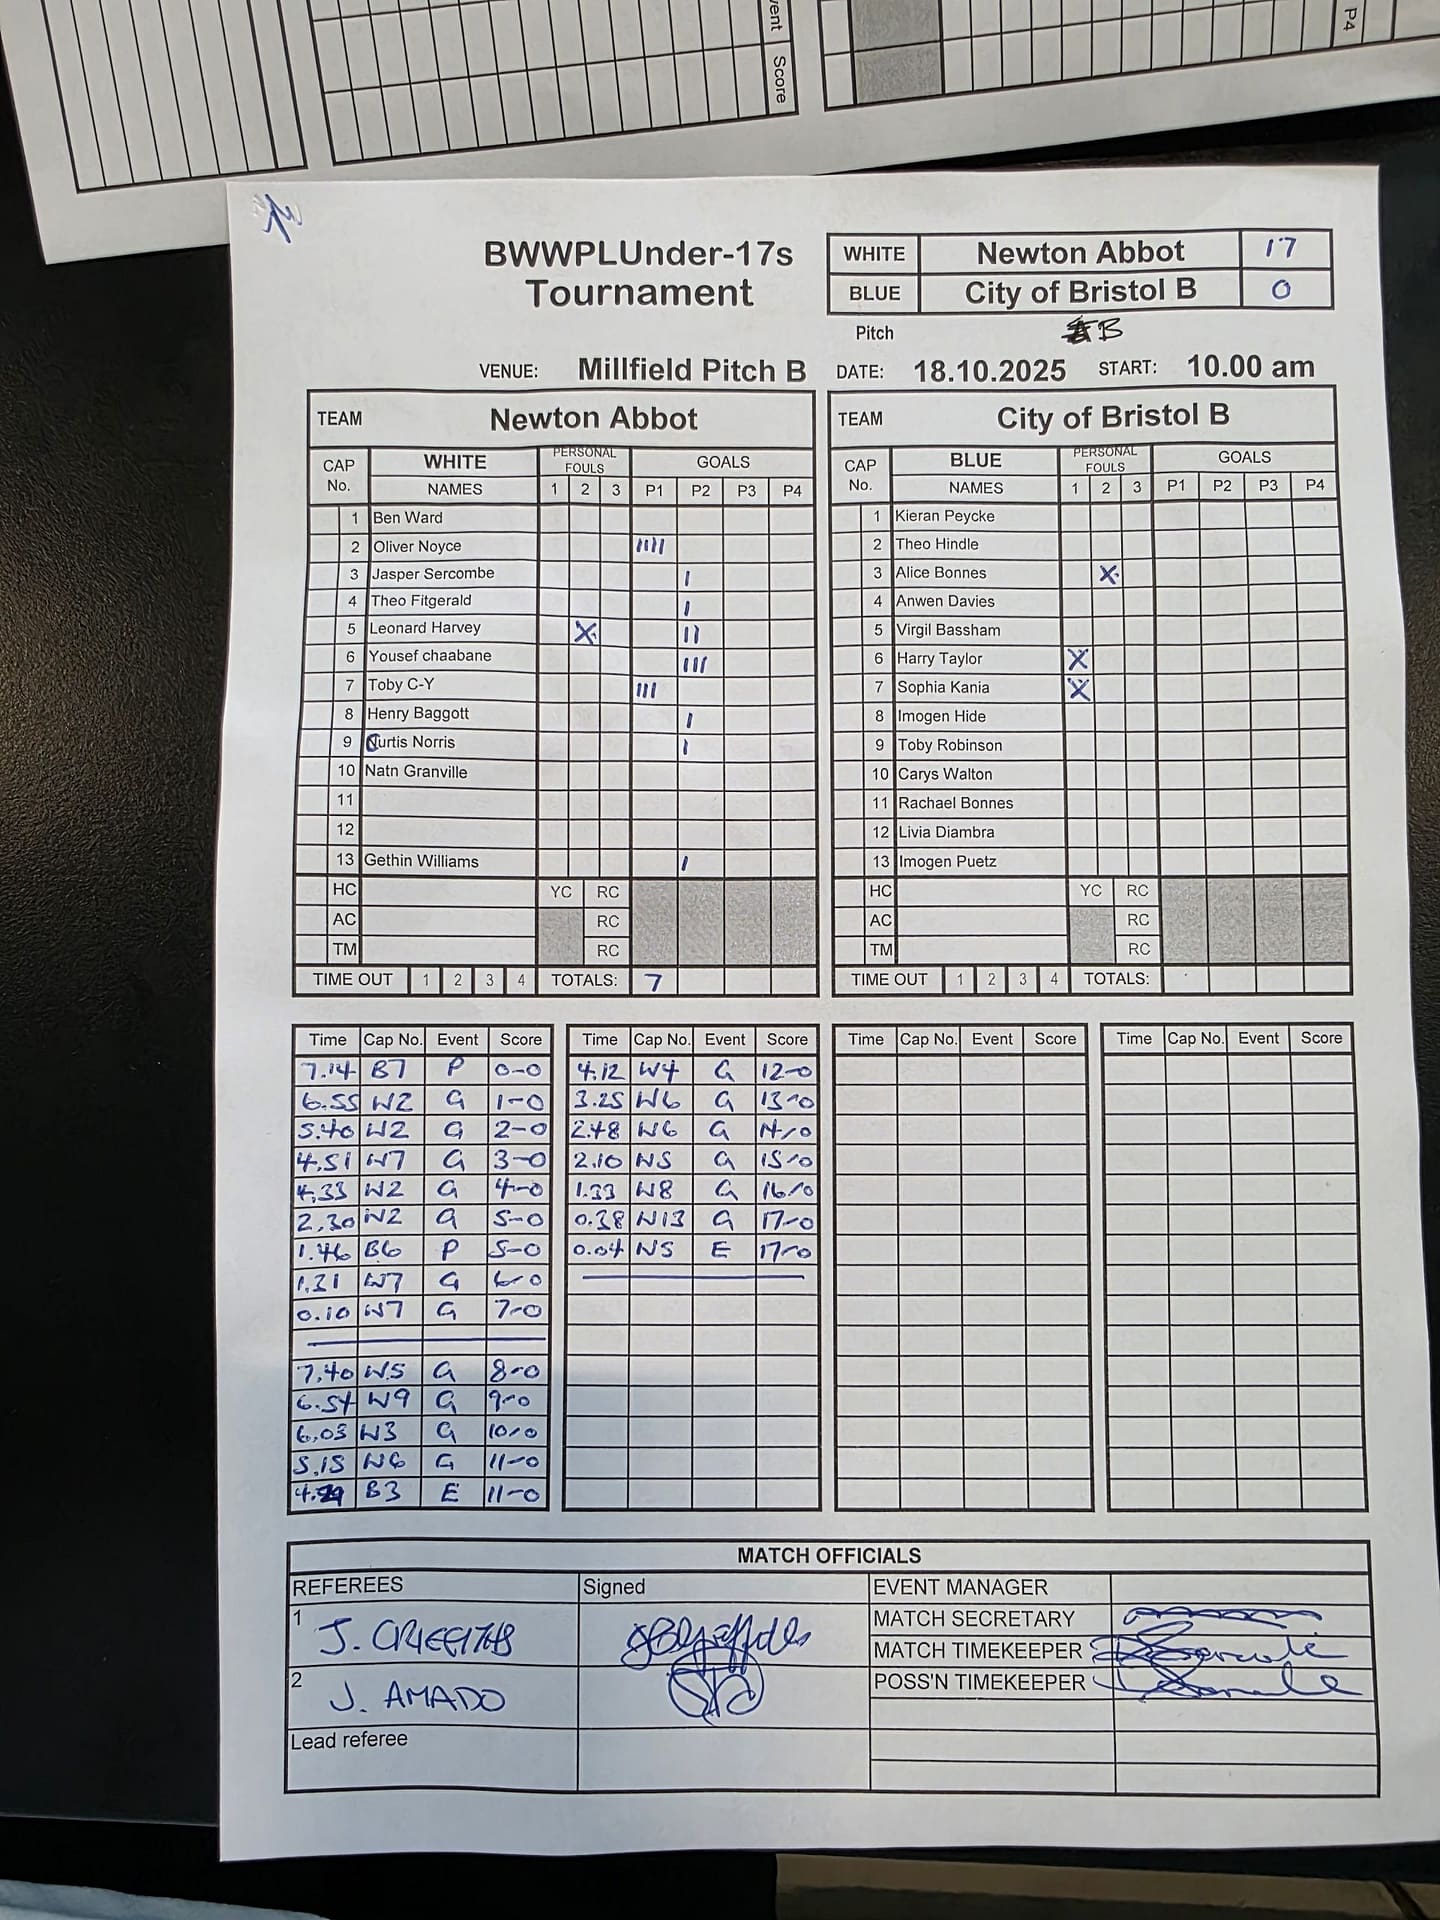 vent Score
P4
BWWPLUnder-17s
Tournament
WHITE Newton Abbot 17
BLUE City of Bristol B 0
Pitch B
VENUE: Millfield Pitch B DATE: 18.10.2025 START: 10.00 am
TEAM Newton Abbot
CAP No. WHITE NAMES PERSONAL FOULS 1 2 3 GOALS P1 P2 P3 P4
1 Ben Ward
2 Oliver Noyce IIII
3 Jasper Sercombe I
4 Theo Fitgerald I
5 Leonard Harvey X II
6 Yousef chaabane III
7 Toby C-Y III
8 Henry Baggott I
9 Curtis Norris I
10 Natn Granville
11
12
13 Gethin Williams I
HC YC RC
AC RC
TM RC
TIME OUT 1 2 3 4 TOTALS: 7
TEAM City of Bristol B
CAP No. BLUE NAMES PERSONAL FOULS 1 2 3 GOALS P1 P2 P3 P4
1 Kieran Peycke
2 Theo Hindle
3 Alice Bonnes X
4 Anwen Davies
5 Virgil Bassham
6 Harry Taylor X
7 Sophia Kania X
8 Imogen Hide
9 Toby Robinson
10 Carys Walton
11 Rachael Bonnes
12 Livia Diambra
13 Imogen Puetz
HC YC RC
AC RC
TM RC
TIME OUT 1 2 3 4 TOTALS:
Time Cap No. Event Score
7.14 B7 P 0-0
6.55 W2 G 1-0
5.40 W2 G 2-0
4.51 W7 G 3-0
4.33 W2 G 4-0
2.30 W2 G 5-0
1.46 B6 P 5-0
1.31 W7 G 6-0
0.10 W7 G 7-0
7.40 W5 G 8-0
6.54 W9 G 9-0
6.03 W3 G 10-0
5.15 W6 G 11-0
B3 E 11-0
Time Cap No. Event Score
4.12 W4 G 12-0
3.25 W6 G 13-0
2.48 W6 G 14-0
2.10 W5 G 15-0
1.33 W8 G 16-0
0.38 W13 G 17-0
0.04 W5 E 17-0
Time Cap No. Event Score
Time Cap No. Event Score
MATCH OFFICIALS
REFEREES Signed EVENT MANAGER
1 J. GRIFFITHS MATCH SECRETARY
MATCH TIMEKEEPER
2 J. AMADO POSS'N TIMEKEEPER
Lead referee